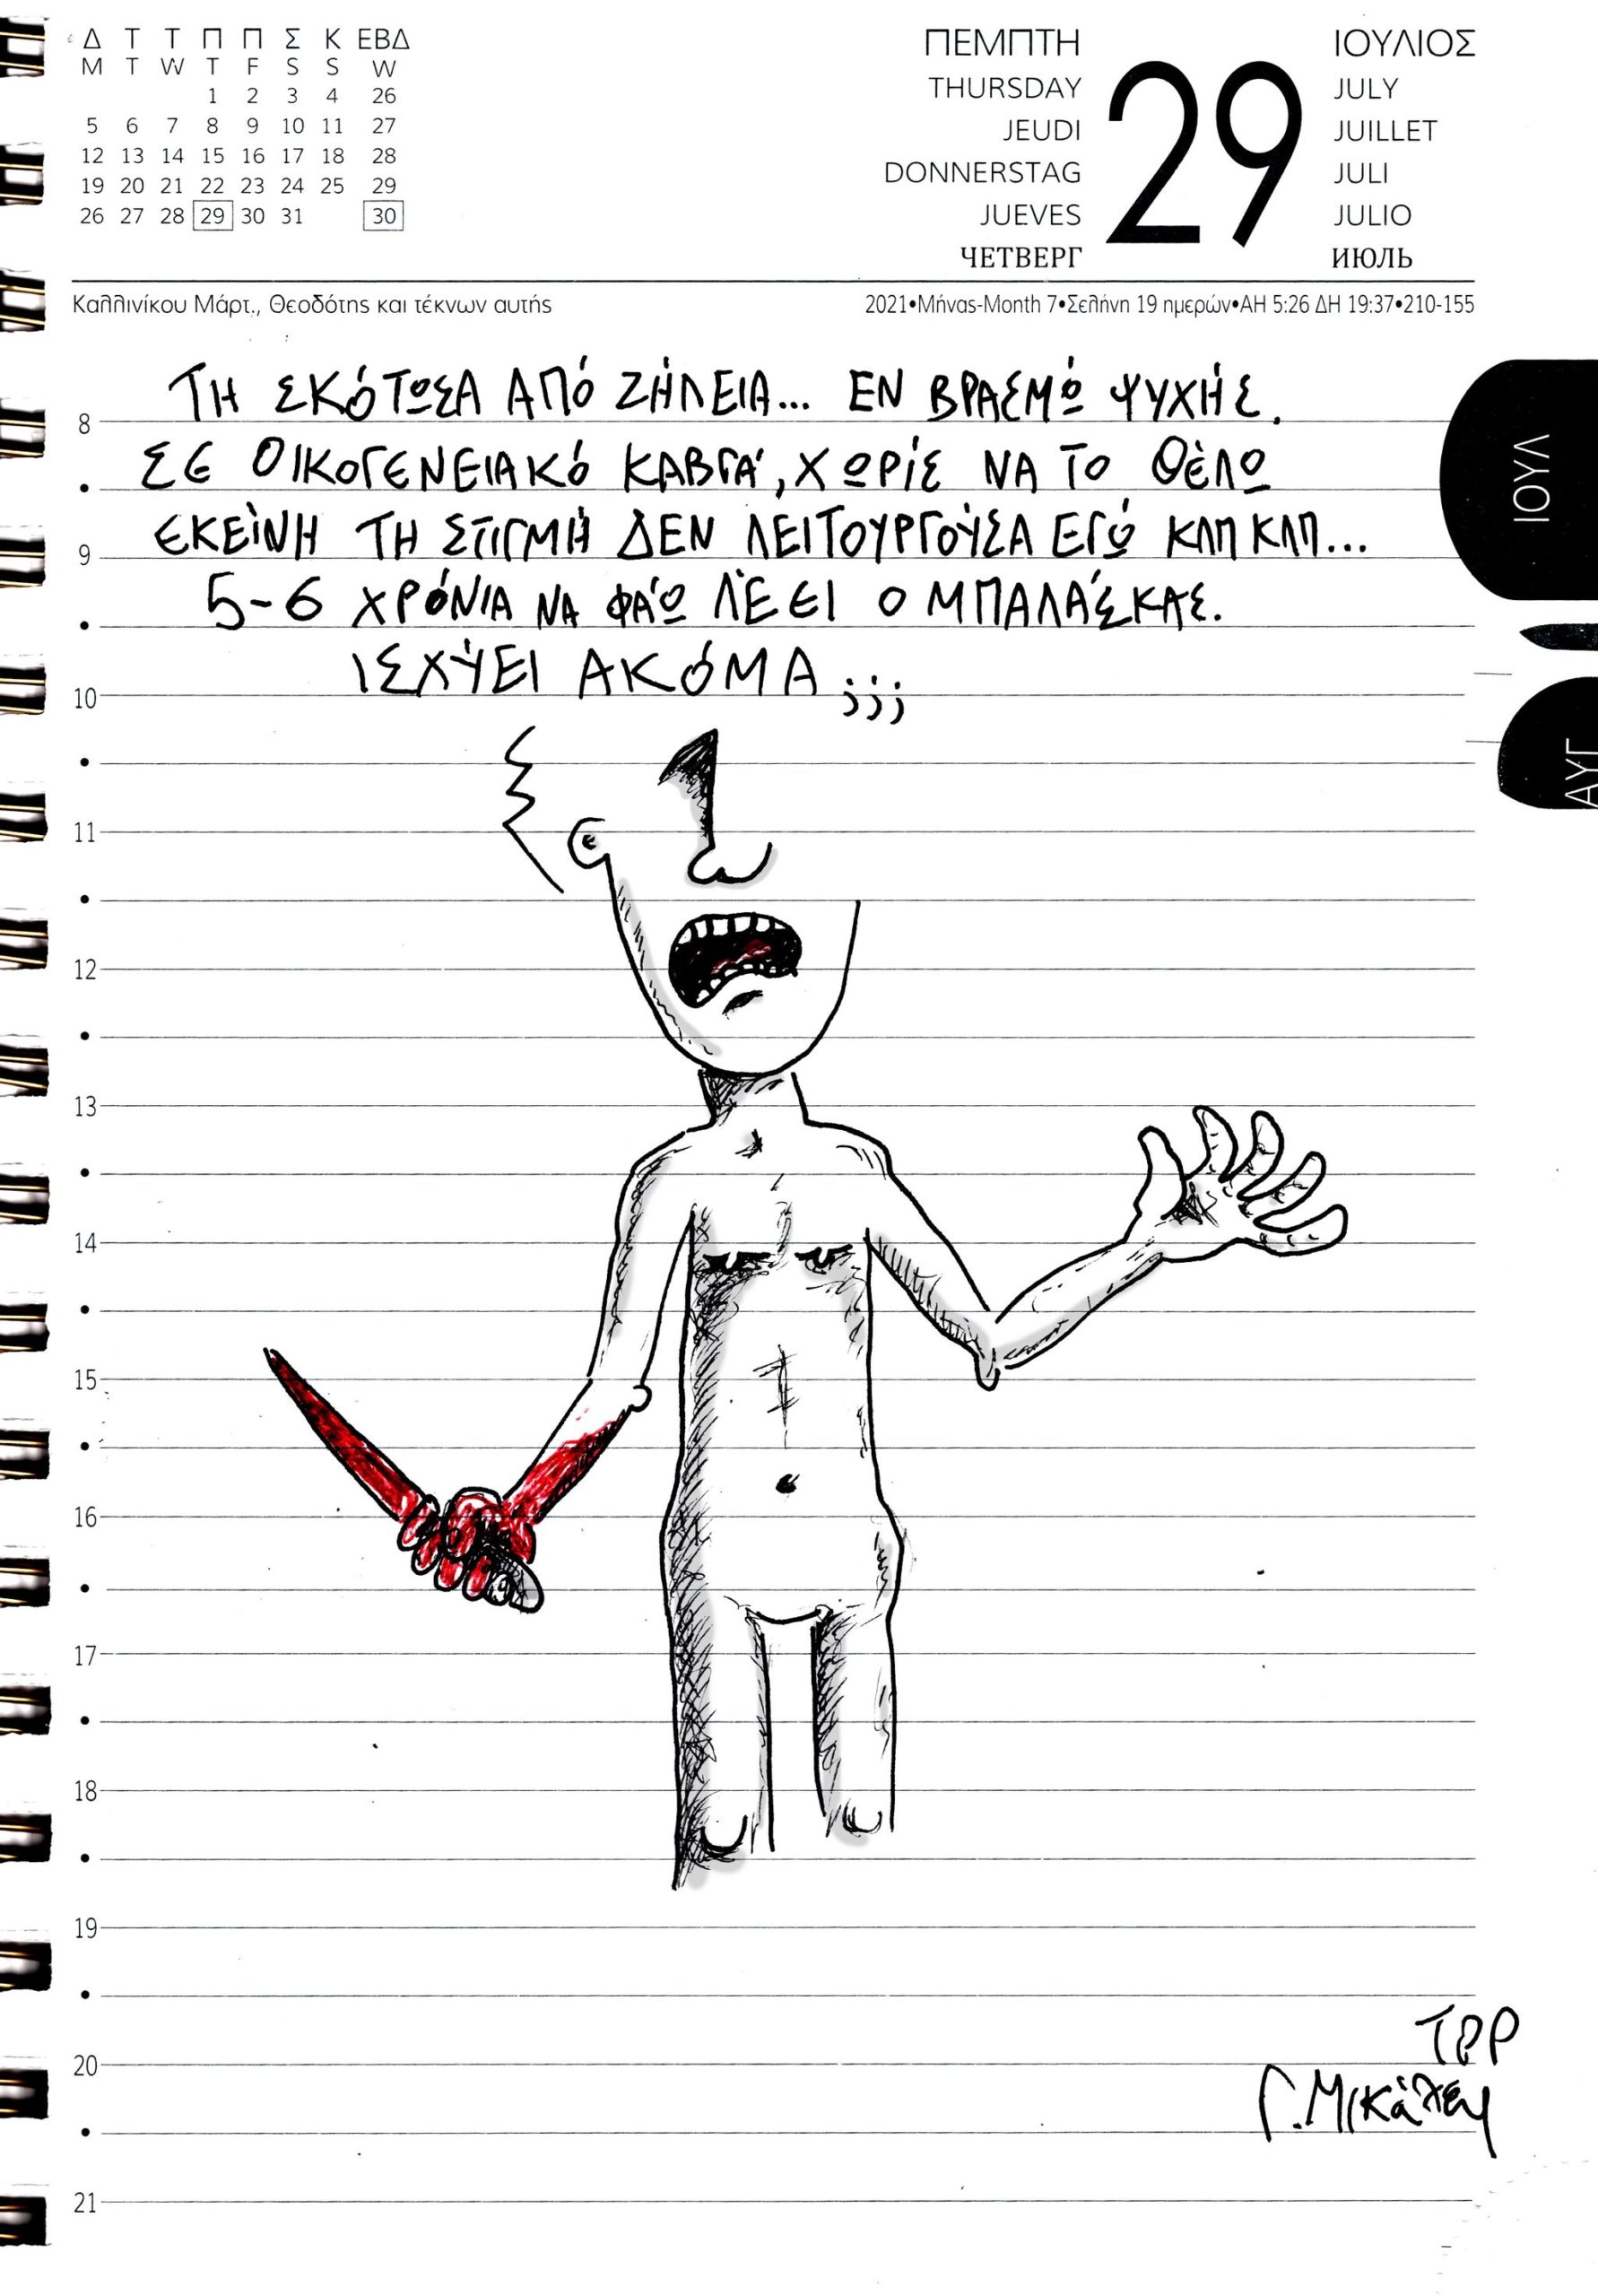 Δ Τ Τ Π Π Σ Κ ΕΒΔ
M T W T F S S W
1 2 3 4 26
5 6 7 8 9 10 11 27
12 13 14 15 16 17 18 28
19 20 21 22 23 24 25 29
26 27 28 29 30 31 30
ΠΕΜΠΤΗ
THURSDAY
JEUDI
DONNERSTAG
JUEVES
ЧЕТВЕРГ
29
ΙΟΥΛΙΟΣ
JULY
JUILLET
JULI
JULIO
ИЮЛЬ
Καλλινίκου Μάρτ., Θεοδότης και τέκνων αυτής
2021•Μήνας-Month 7•Σελήνη 19 ημερών•ΑΗ 5:26 ΔΗ 19:37•210-155
ΤΗ ΣΚΌΤΩΣΑ ΑΠΌ ΖΉΛΕΙΑ... ΕΝ ΒΡΑΣΜΏ ΨΥΧΉΣ.
8
ΣΕ ΟΙΚΟΓΕΝΕΙΑΚΌ ΚΑΒΓΆ, ΧΩΡΊΣ ΝΑ ΤΟ ΘΈΛΩ
ΕΚΕΊΝΗ ΤΗ ΣΤΙΓΜΉ ΔΕΝ ΛΕΙΤΟΥΡΓΟΎΣΑ ΕΓΏ ΚΛΠ ΚΛΠ...
9
5-6 ΧΡΌΝΙΑ ΝΑ ΦΆΩ ΛΈΕΙ Ο ΜΠΑΛΆΣΚΑΣ.
ΙΣΧΎΕΙ ΑΚΌΜΑ ;;;
10
11
12
13
14
15
16
17
18
19
20
21
ΙΟΥΛ
ΑΥΓ